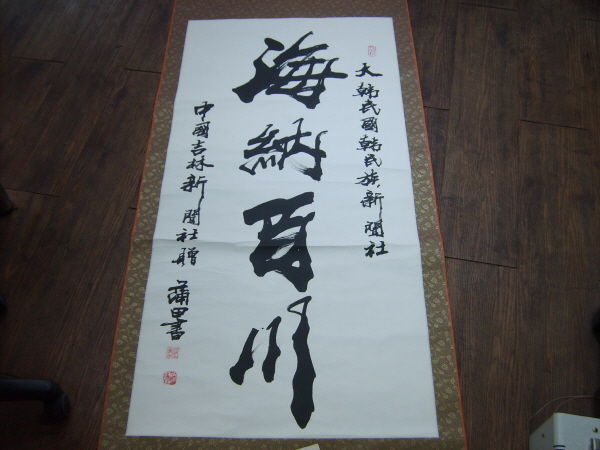 大韓民國韓民族新聞社
海納百川
中國吉林新聞社贈 蒲田書